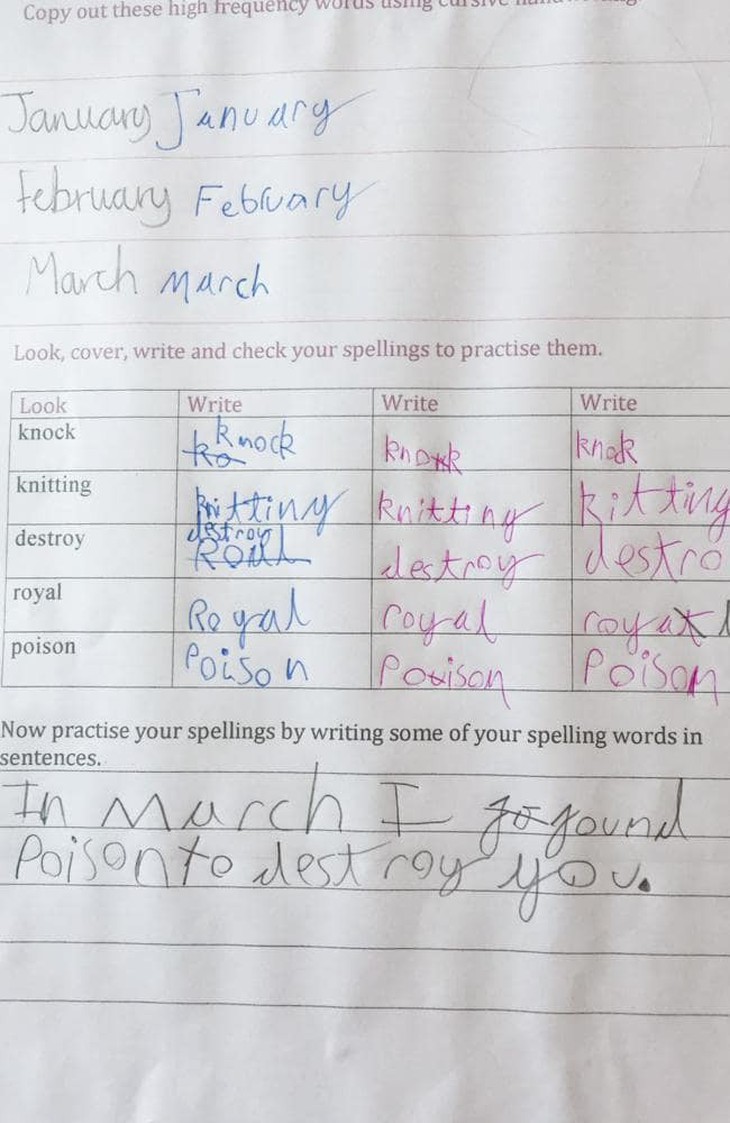 Copy out these high frequency words using cursive handwriting.
January January
February February
March March
Look, cover, write and check your spellings to practise them.
Look Write Write Write
knock Knock knok
knitting knitting kitting
destroy destroy destroy destro
royal Royal royal royal
poison Poison Poison Poison
Now practise your spellings by writing some of your spelling words in
sentences.
In March I go found
Poison to destroy you.